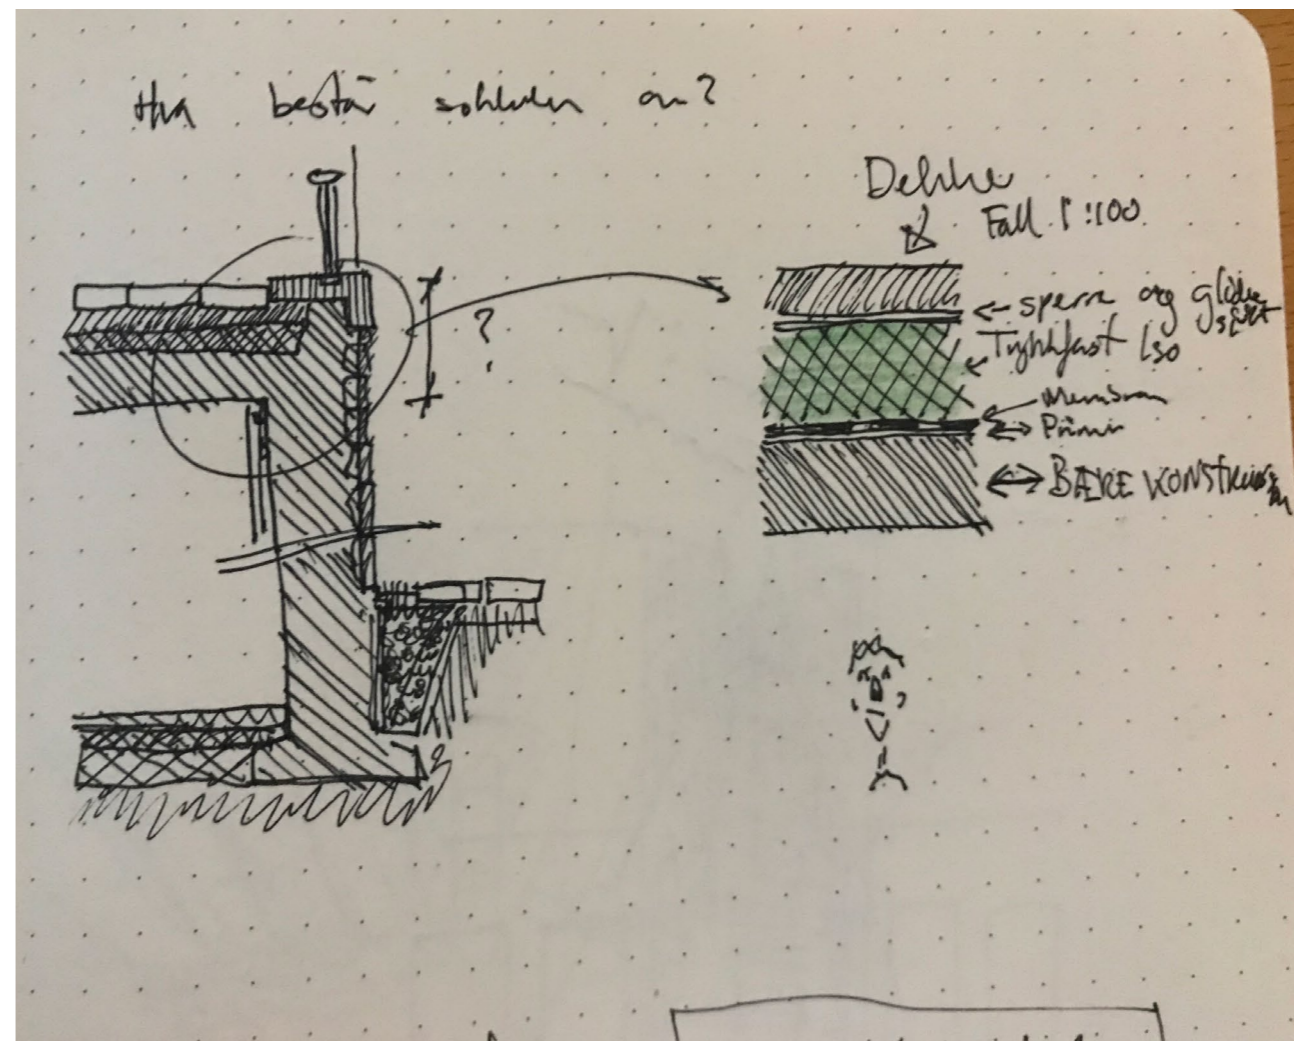 Hva består sokkelen av?
Dekke
Fall 1:100
?
sperre og glidesjikt
Trykkfast Iso
Membran
Primer
BÆRE KONSTRUKSJON